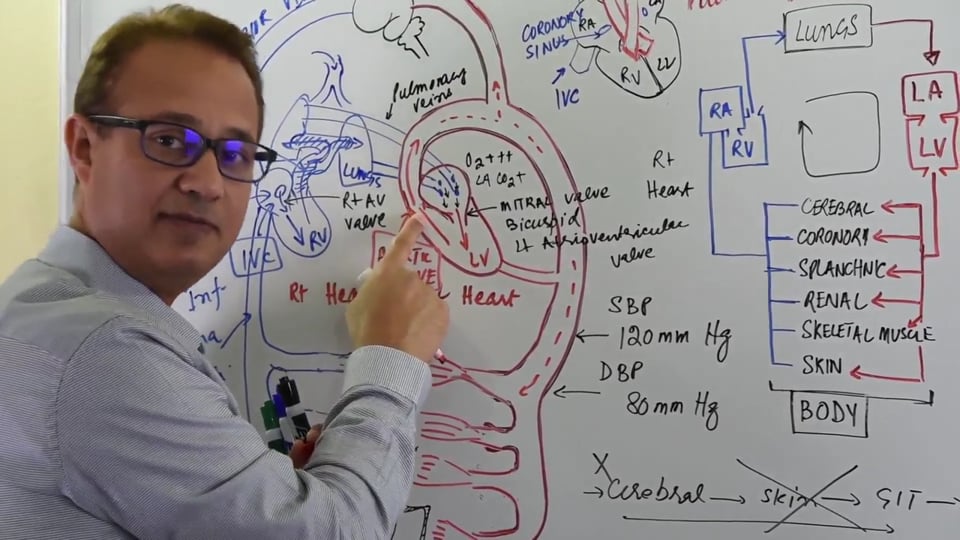 CORONARY
SINUS
IVC
RA
RV
LV
Pulmonary
veins
LUNGS
O2 +++
CO2 +
Rt AV
valve
RV
IVC
Inf
MITRAL valve
Bicuspid
Lt Atrioventricular
valve
LV
Rt
Heart
SBP
120 mm Hg
DBP
80 mm Hg
LUNGS
RA
RV
LA
LV
Rt
Heart
CEREBRAL
CORONORY
SPLANCHNIC
RENAL
SKELETAL MUSCLE
SKIN
BODY
X
Cerebral
skin
GIT